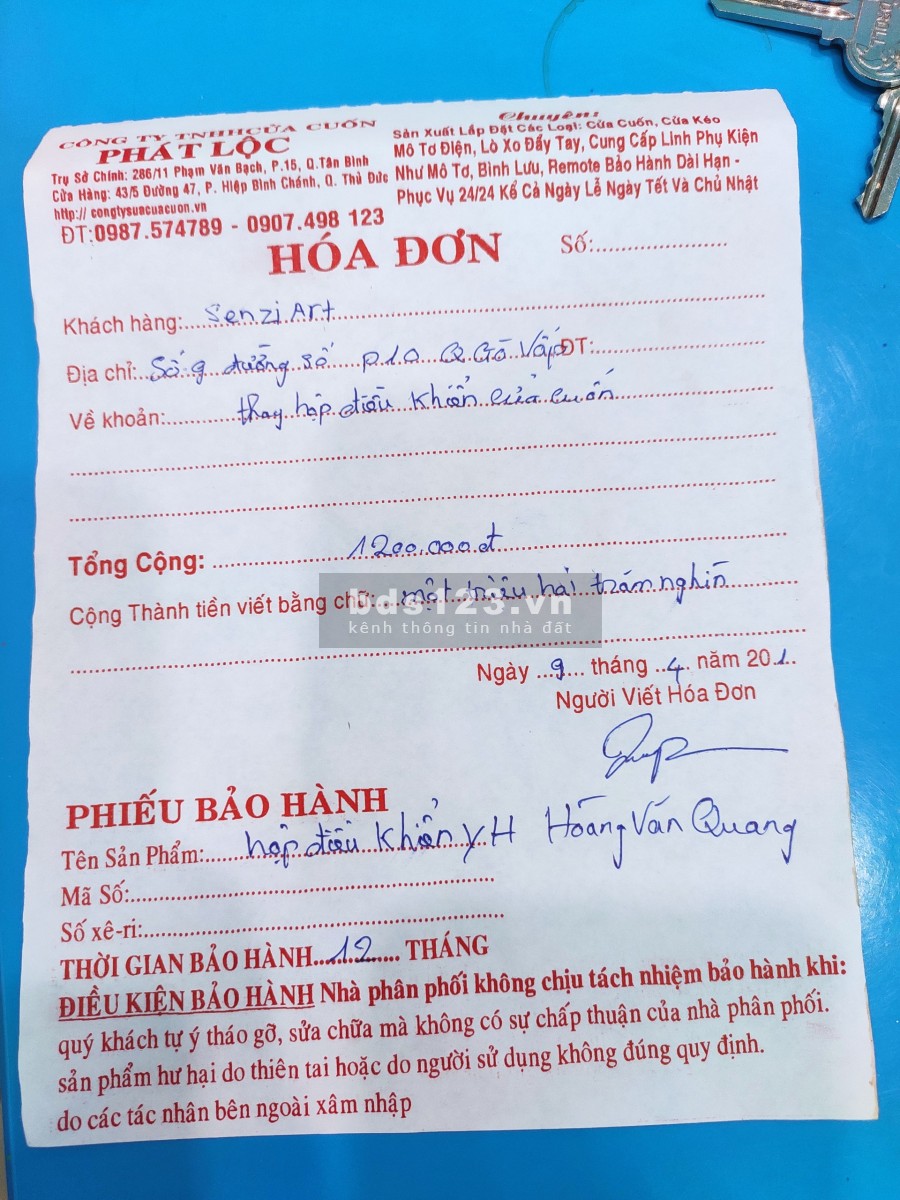 CÔNG TY TNHH CỬA CUỐN
PHÁT LỘC
Trụ Sở Chính: 286/11 Phạm Văn Bạch, P.15, Q.Tân Bình
Cửa Hàng: 43/5 Đường 47, P. Hiệp Bình Chánh, Q. Thủ Đức
http:// congtysuacuacuon.vn
ĐT:0987.574789 - 0907.498 123
Chuyên:
Sản Xuất Lắp Đặt Các Loại: Cửa Cuốn, Cửa Kéo
Mô Tơ Điện, Lò Xo Đẩy Tay, Cung Cấp Linh Phụ Kiện
Như Mô Tơ, Bình Lưu, Remote Bảo Hành Dài Hạn -
Phục Vụ 24/24 Kể Cả Ngày Lễ Ngày Tết Và Chủ Nhật
HÓA ĐƠN
Số:.....................
Khách hàng: Senzi Art
Địa chỉ: Số 9 đường số P10 Q Gò Vấp ĐT:
Về khoản: thay hộp điều khiển cửa cuốn
Tổng Cộng: 1200.000đ
Cộng Thành tiền viết bằng chữ: một triệu hai trăm nghìn
bds123.vn
kênh thông tin nhà đất
Ngày ...9... tháng ..4.. năm 201.
Người Viết Hóa Đơn
PHIẾU BẢO HÀNH
Tên Sản Phẩm: hộp điều khiển YH Hoàng Văn Quang
Mã Số:
Số xê-ri:
THỜI GIAN BẢO HÀNH....12.... THÁNG
ĐIỀU KIỆN BẢO HÀNH Nhà phân phối không chịu tách nhiệm bảo hành khi:
quý khách tự ý tháo gỡ, sửa chữa mà không có sự chấp thuận của nhà phân phối.
sản phẩm hư hại do thiên tai hoặc do người sử dụng không đúng quy định.
do các tác nhân bên ngoài xâm nhập